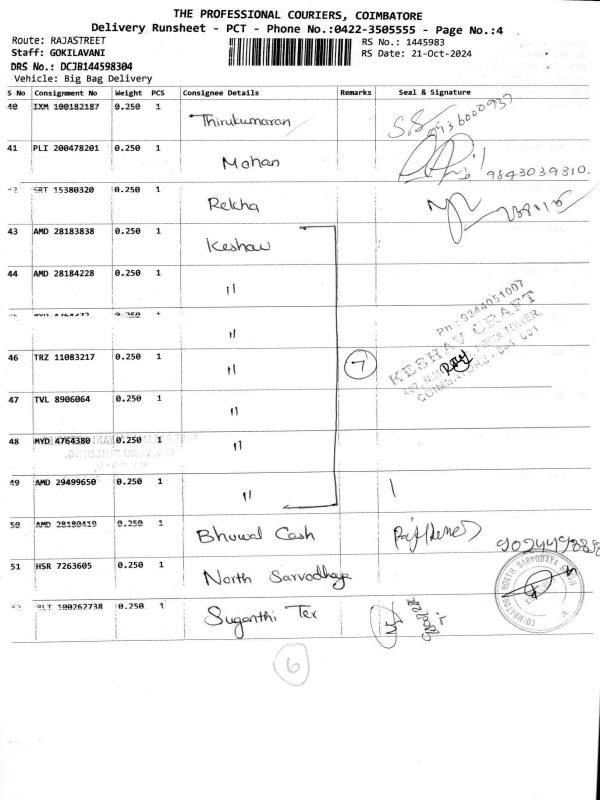 THE PROFESSIONAL COURIERS, COIMBATORE
Delivery Runsheet - PCT - Phone No.:0422-3505555 - Page No.:4
Route: RAJASTREET
RS No.: 1445983
Staff: GOKILAVANI
RS Date: 21-Oct-2024
DRS No.: DCJB144598304
Vehicle: Big Bag Delivery
S No Consignment No Weight PCS Consignee Details Remarks Seal & Signature
40 IXM 100182187 0.250 1 Thirukumaran
41 PLI 200478201 0.250 1 Mohan 9843039310.
SRT 15380320 0.250 1 Rekha
43 AMD 28183838 0.250 1 Keshav
44 AMD 28184228 0.250 1 "
0.250 "
Ph : 9344051007
KESHAV CRAFT
46 TRZ 11083217 0.250 1 " 7
47 TVL 8906064 0.250 1 "
48 MYD 4764380 0.250 1 "
49 AMD 29499650 0.250 1 "
50 AMD 28180419 0.250 1 Bhuwal Cash
51 HSR 7263605 0.250 1 North Sarvodhaya
COIMBATORE NORTH SARVODAYA SANGH
100262738 0.250 1 Suganthi Tex
6